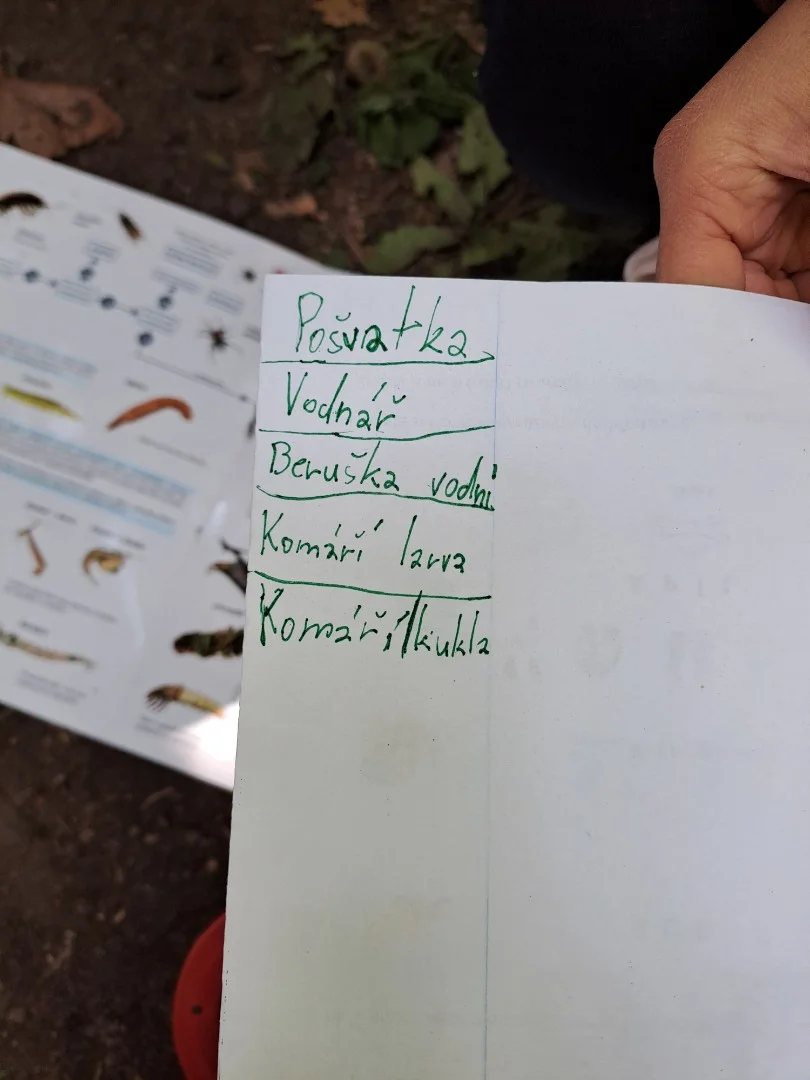 Pošvatka
Vodnář
Beruška vodní
Komáří larva
Komáří kukla